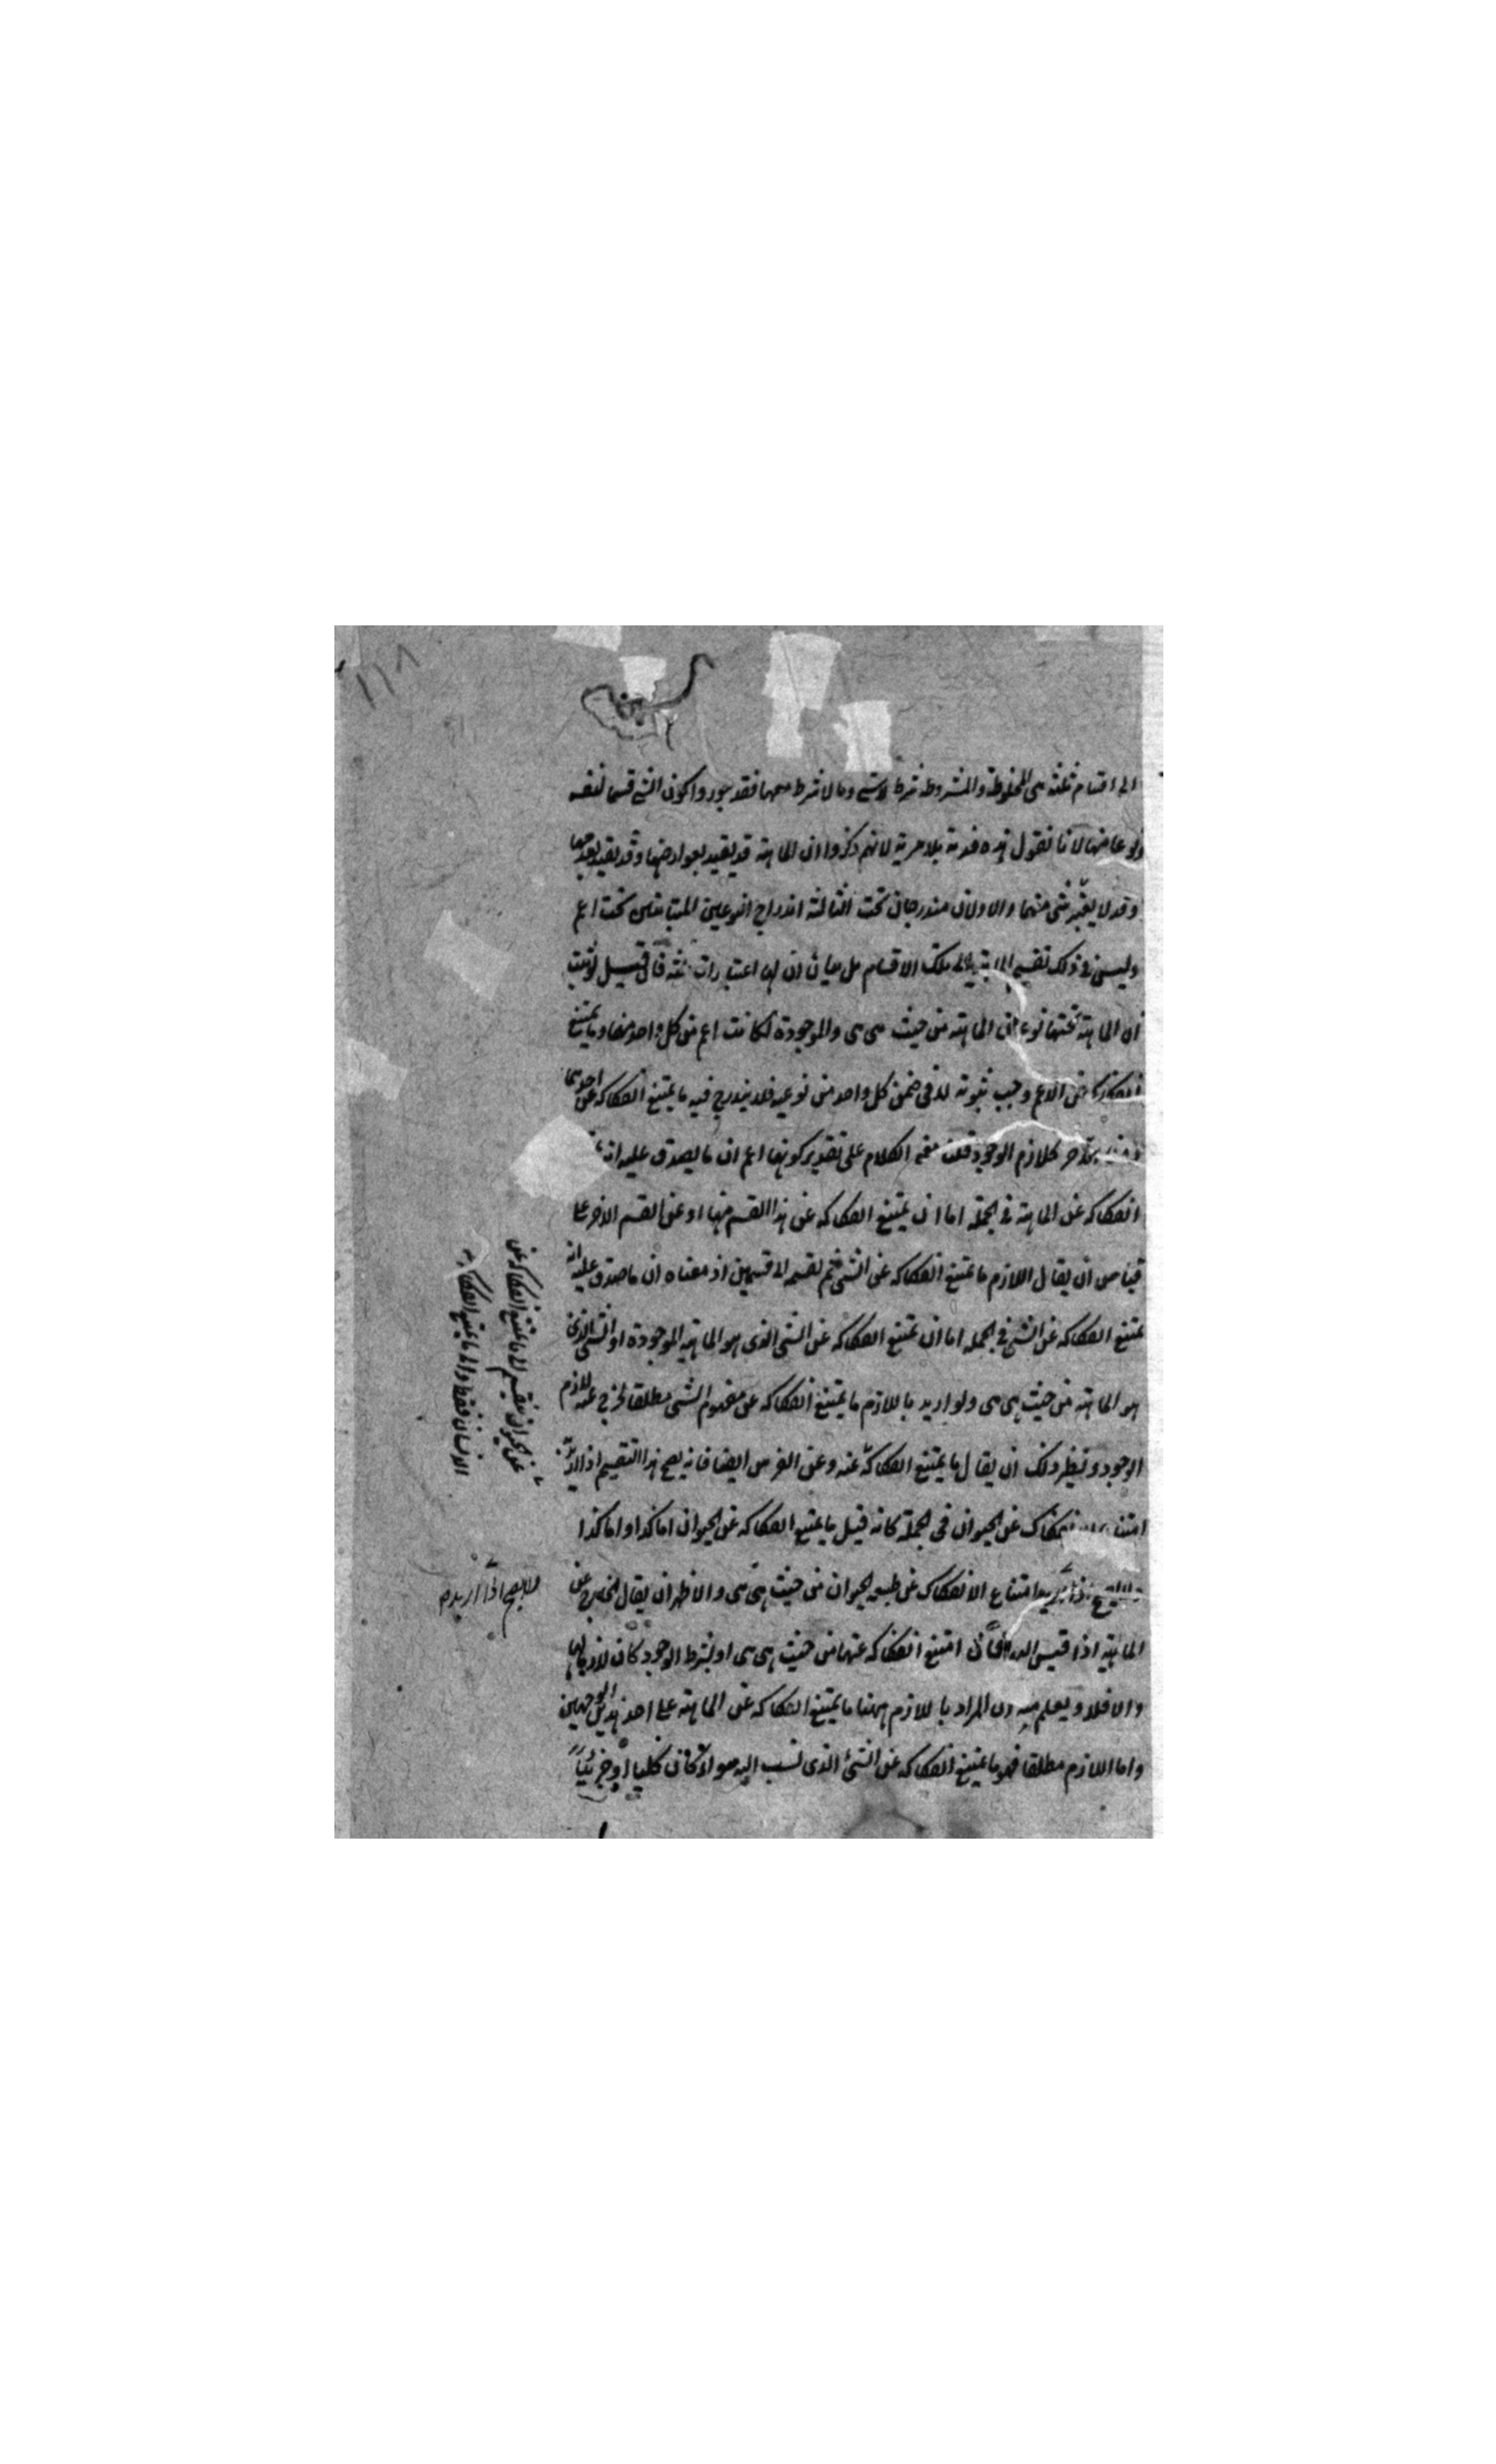 الى اقسام ثلثة هى المخلوطة والمشروطة بشرط لا شئ وما لا بشرط معهما فقد جوزوا كون الشئ قسما لنفسه
نوعا منها لانا نقول هذه فرية بلا مرية لانهم ذكروا ان الماهية قد يقيد بعوارضها وقد يقيد بعدمها
وقد لا يعتبر شئ منهما والاولان مندرجان تحت الثالثة اندراج النوعين المتباينين تحت اعم
وليس فى ذلك تقسيم الماهية الى تلك الاقسام بل بيان ان لها اعتبارات ثلثة فان قيل لو ثبت
ان الماهية تحتها نوعان الماهية من حيث هى هى والموجودة لكانت اعم من كل واحد منهما وما يمتنع
انفكاكه عن الاعم وجب ثبوته له فى ضمن كل واحد من نوعيه فلا يندرج فيه ما يمتنع انفكاكه عن احدهما
دون الاخر كلازم الوجود قلت معنى الكلام على تقدير كونها اعم ان ما يصدق عليه انه يمتنع
انفكاكه عن الماهية فى الجملة اما ان يمتنع انفكاكه عن هذا القسم منها او عن القسم الاخر على
قياس ان يقال اللازم ما يمتنع انفكاكه عن الشئ ثم يقسم الى قسمين اذ معناه ان ما صدق عليه انه
يمتنع انفكاكه عن الشئ فى الجملة اما ان يمتنع انفكاكه عن الشئ الذى هو الماهية الموجودة او الشئ الذى
هو الماهية من حيث هى هى ولو اريد باللازم ما يمتنع انفكاكه عن مفهوم الشئ مطلقا لخرج عنه لازم
الوجود ونظير ذلك ان يقال ما يمتنع انفكاكه عنه وعن الفرس ايضا فانه يصح هذا التقسيم اذا اريد
امتناع الانفكاك عن الحيوان فى الجملة كانه قيل ما يمتنع انفكاكه عن الحيوان اما كذا واما كذا
ولا يصح اذا اريد امتناع الانفكاك عن طبيعة الحيوان من حيث هى هى والاظهر ان يقال الخارج عن
الماهية اذا قيس اليها فان امتنع انفكاكه عنها من حيث هى هى او بشرط الوجود كان لازما لها
والا فلا ويعلم منه ان المراد باللازم ههنا ما يمتنع انفكاكه عن الماهية على احد هذين الوجهين
واما اللازم مطلقا فهو ما يمتنع انفكاكه عن الشئ الذى نسب اليه سواء كان كليا او جزئيا
عن الحيوان ينقسم الى ما يمتنع انفكاكه عن
الانسان فقط والى ما يمتنع انفكاكه
ولا يصح اذا اريد
١١٨